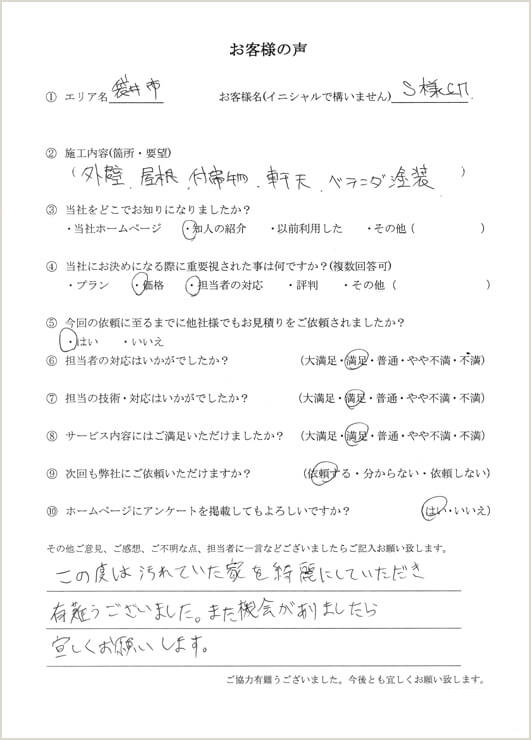 お客様の声
① エリア名 袋井市 お客様名(イニシャルで構いません) S様
② 施工内容(箇所・要望)
(外壁、屋根、付帯物、軒天、ベランダ塗装)
③ 当社をどこでお知りになりましたか？
・当社ホームページ ・知人の紹介 ・以前利用した ・その他 ( )
④ 当社にお決めになる際に重要視された事は何ですか？(複数回答可)
・プラン ・価格 ・担当者の対応 ・評判 ・その他 ( )
⑤ 今回の依頼に至るまでに他社様でもお見積りをご依頼されましたか？
・はい ・いいえ
⑥ 担当者の対応はいかがでしたか？ (大満足・満足・普通・やや不満・不満)
⑦ 担当の技術・対応はいかがでしたか？ (大満足・満足・普通・やや不満・不満)
⑧ サービス内容にはご満足いただけましたか？ (大満足・満足・普通・やや不満・不満)
⑨ 次回も弊社にご依頼いただけますか？ (依頼する・分からない・依頼しない)
⑩ ホームページにアンケートを掲載してもよろしいですか？ (はい・いいえ)
その他ご意見、ご感想、ご不明な点、担当者に一言などございましたらご記入お願い致します。
この度は汚れていた家を綺麗にしていただき
有難うございました。また機会がありましたら
宜しくお願いします。
ご協力有難うございました。今後とも宜しくお願い致します。